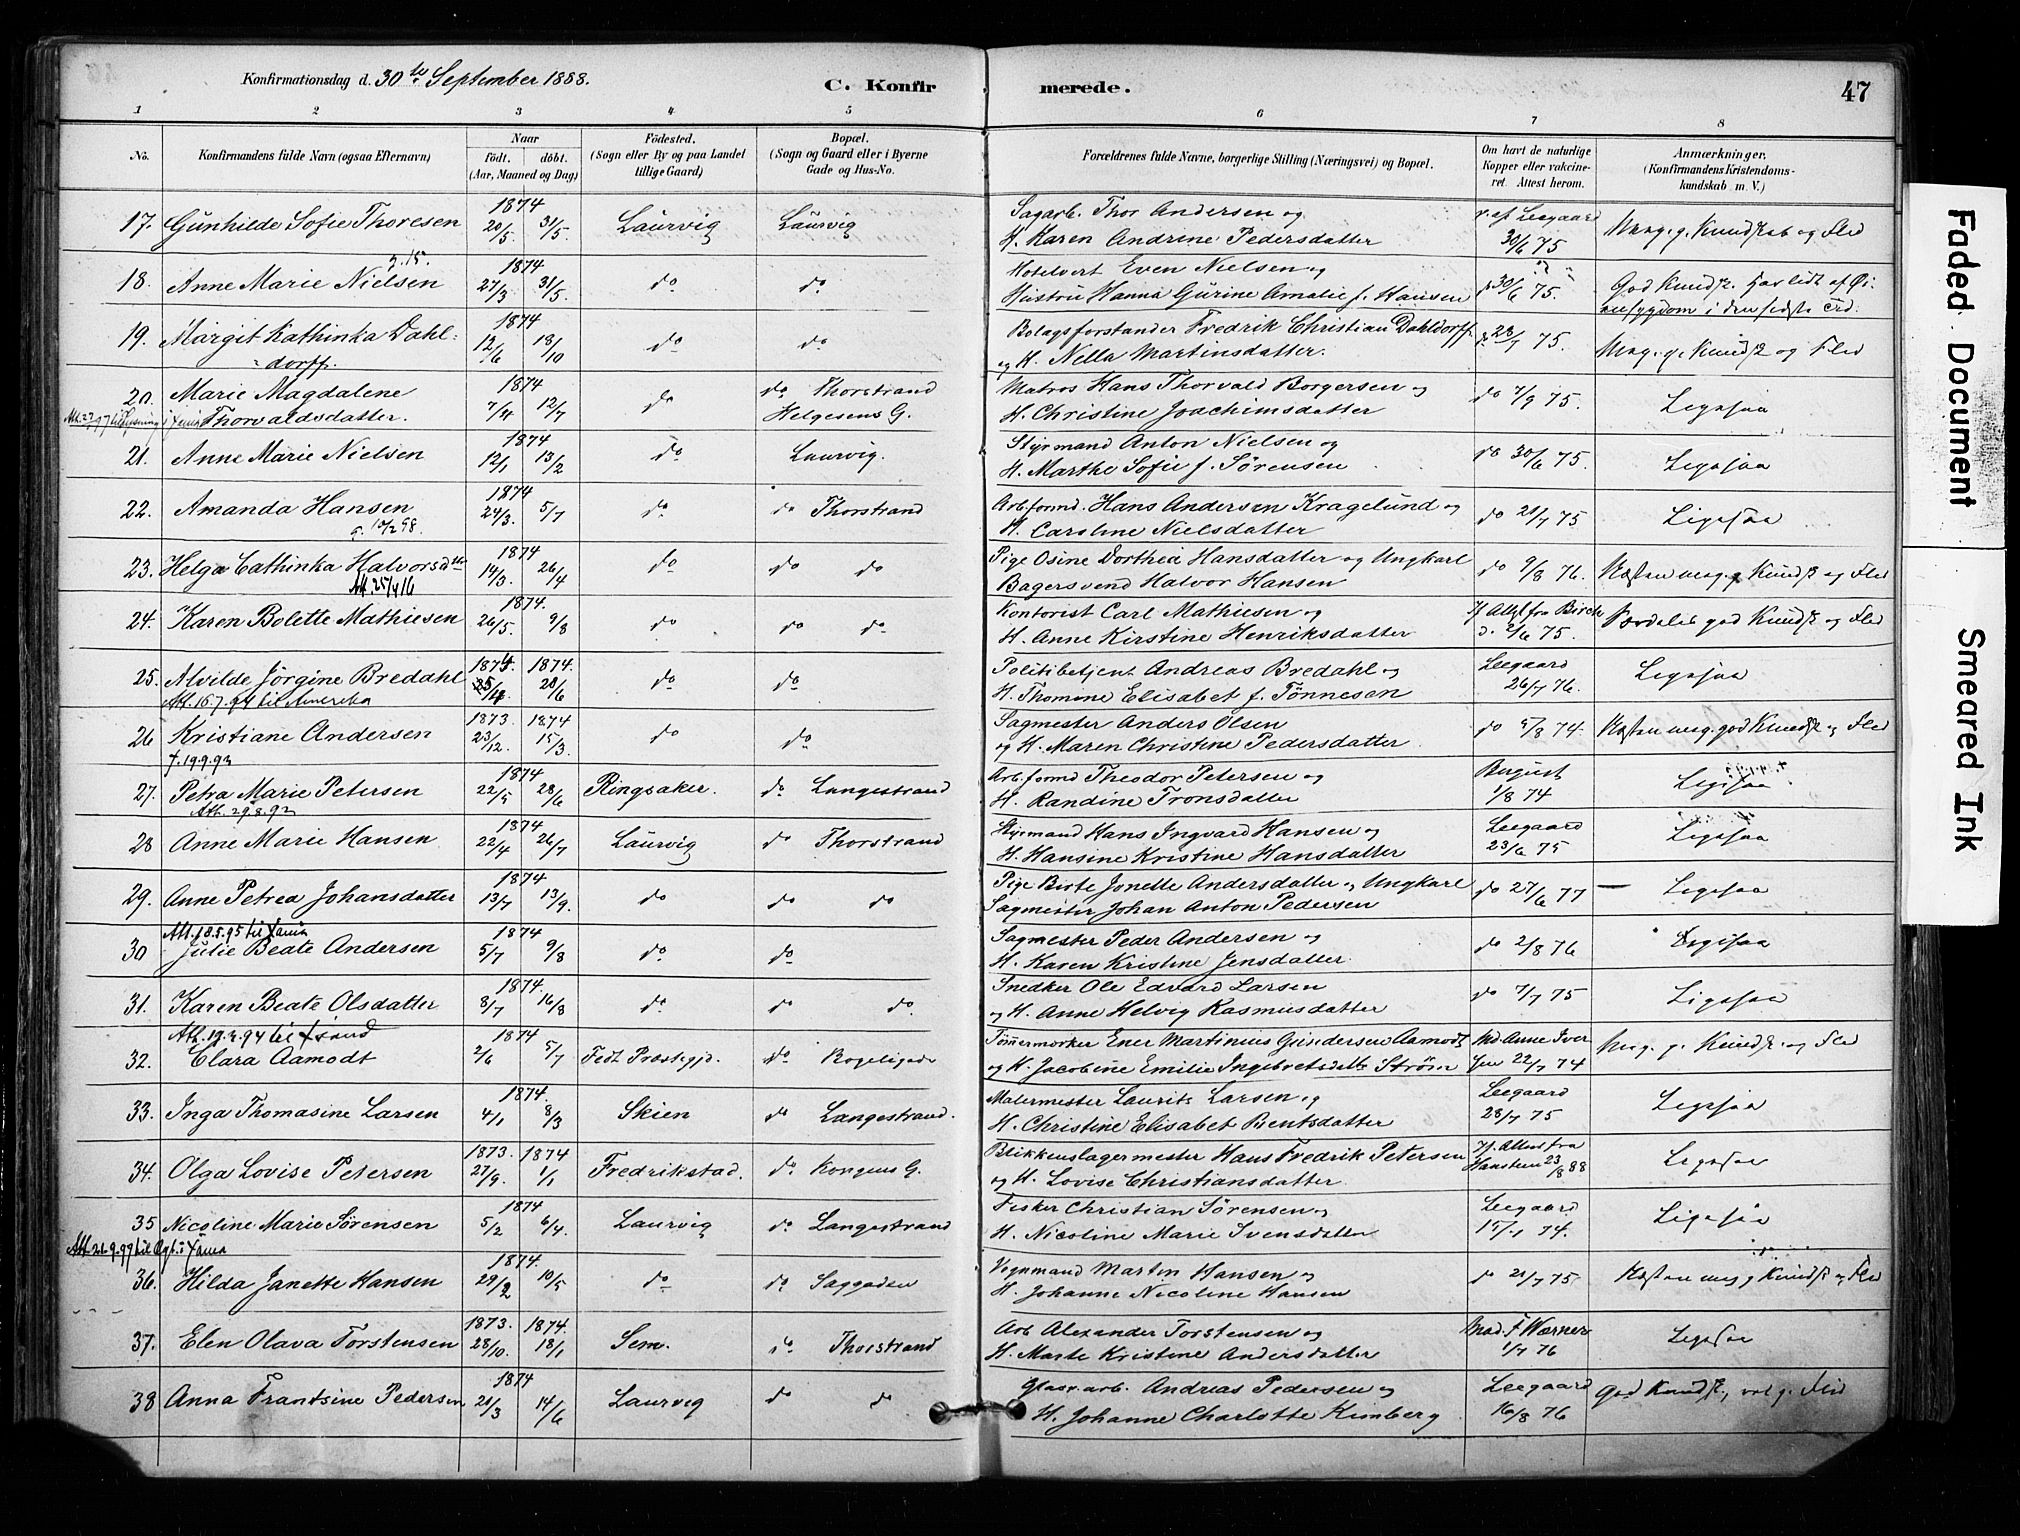 Konfirmationsdag d. 30te September 1888. C. Konfirmerede. 47
1 2 3 4 5 6 7 8
No. Konfirmandens fulde Navn (ogsaa Efternavn) Naar födt. döbt. (Aar, Maaned og Dag) Födested. (Sogn eller By og paa Landet tillige Gaard) Bopæl. (Sogn og Gaard eller i Byerne Gade og Hus-No. Forældrenes fulde Navne, borgerlige Stilling (Næringsvei) og Bopæl. Om havt de naturlige Kopper eller vakcineret. Attest herom. Anmærkninger. (Konfirmandens Kristendomskundskab m. V.)
17. Gunhilde Sofie Thoresen 1874 20/5 31/5. Laurvig Laurvig Sagarb. Thor Andersen og v. af Leegaard
H. Karen Andrine Pedersdatter 30/6 75 Meg. g. Kundskab og Flid
18. Anne Marie Nielsen 1874 27/3 31/5. do do Hotelvert Even Nielsen og
Hustru Hanna Gurine Amalie f. Hansen 30/6 75. God Kundsk. har lidt af Øiensygdom i den sidste Tid.
19. Margit Kathinka Dahl- 1874 12/6 18/10 do do Bolagsforstander Fredrik Christian Dahldorff
dorff. og H. Nella Martinsdatter. 75. Meg. g. Kundsk og Flid
20. Marie Magdalene 1874 7/4 12/7 do do Thorstrand Matros Hans Thorvald Borgersen og
Thorvaldsdatter. Helgesens G. H. Christine Joachimsdatter do 7/9 75. Ligesaa
21. Anne Marie Nielsen 1874 12/1 13/2 do Laurvig. Styrmand Anton Nielsen og
H. Marthe Sofie f. Sörensen do 30/6 75. Ligesaa
22. Amanda Hansen 1874 24/3. 5/7 do do Thorstrand Arbformd. Hans Andersen Kragelund og
H. Caroline Nielsdatter do 21/7 75 Ligesaa
23. Helga Cathinka Halvorsdtr 1874 14/3. 26/4 do do do Pige Osine Dorthea Hansdatter og Ungkarl
Att. 25/4 16 Bagersvend Halvor Hansen do 9/8 76. Næsten meg. g. Kundsk og Flid
24. Karen Bolette Mathiesen 1874. 26/5. 9/8 do do do Kontorist Carl Mathiesen og
H. Anne Kirstine Henriksdatter 75. god Kundsk og Flid
25. Alvilde Jörgine Bredahl 1874. 28/6 do do Politibetjent Andreas Bredahl og Leegaard
Att. 16.7.94 til Amerika H. Thomine Elisabet f. Tönnesen 26/7 76. Ligesaa
26 Kristiane Andersen 1873. 23/12. 1874 15/3. do do Sagmester Anders Olsen
f. 19.9.93 og H. Maren Christine Pedersdatter do 5/8 74. Næsten meg. god Kundsk og Flid
27. Petra Marie Petersen 1874 22/5 28/6 Ringsaker. do Langestrand Arb.formd Theodor Petersen og August
Att. 29.8.92 H. Randine Tronsdatter 1/8 74 Ligesaa
28 Anne Marie Hansen 1874 22/4 26/7 Laurvig do Thorstrand Styrmand Hans Ingvard Hansen og Leegaard
H. Hansine Kristine Hansdatter 23/6 75 Ligesaa
29. Anne Petrea Johansdatter 1874 13/7 13/9. do do do Pige Birte Jonette Andersdatter og Ungkarl
Sagmester Johan Anton Pedersen do 27/6 77 Ligesaa
Att. 18.5.95 til Xania
30 Julie Beate Andersen 1874 5/7 9/8 do do Sagmester Peder Andersen og
H. Karen Kristine Jensdatter. do 2/8 76 Ligesaa
31. Karen Beate Olsdatter 1874. 8/7 16/8 do do do Snedker Ole Edvard Larsen
og H. Anne Helvig Rasmusdatter do 7/7 75 Ligesaa
32. Clara Aamodt 1874 2/6 5/7 do Bögeligade Tömmermerker Ener Martinius Gundersen Aamodt Md. Anne Iver
og H. Jacobine Emilie Ingebretsdatter Ström sen 22/7 74 Meg. g. Kundsk. og Flid
33. Inga Thomasine Larsen 1874. 4/1 8/3 Skien do Langestrand. Malermester Laurits Larsen og Leegaard
H. Christine Elisabet Bentsdatter 28/7 75 Ligesaa
34. Olga Lovise Petersen 1873. 27/9. 1874 1/1 Fredrikstad. do Kongens G. Blikkenslagermester Hans Fredrik Petersen
og H. Lovise Christiansdatter 23/8 88 Ligesaa
35 Nicoline Marie Sörensen 1874 5/2 6/4. Laurvig do Langestrand Fisker Christian Sörensen og Leegaard
H. Nicoline Marie Ivensdatter 74. Ligesaa
36. Hilda Janette Hansen 1874. 29/2 10/5 do do Saggaden Vognmand Martin Hansen og
H. Johanne Nicoline Hansen do 21/7 75 Næsten meg g Kundsk og Flid
37. Elen Olava Torstensen 1873. 28/10. 1874. 18/1 Sem. do Thorstrand Arb Alexander Torstensen og Mad. F. Wærner
H. Marte Kristine Andersdatter 1/7 76 Ligesaa
38 Anna Frantsine Pedersen 1874 21/3 14/6 Laurvig do do Glasv.arb. Andreas Pedersen og Leegaard
H. Johanne Charlotte Kimberg 16/8 76 God Kundsk, g. Flid
Faded Document
Smeared Ink